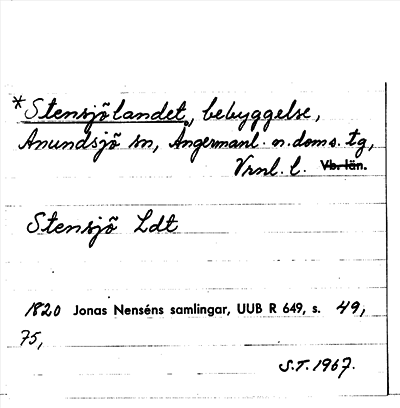 *Stensjölandet, bebyggelse,
Anundsjö sn, Ångermanl. n. doms. tg,
Vrnl. l. Vb. län.
Stensjö Ldt
1820 Jonas Nenséns samlingar, UUB R 649, s. 49,
75,
S.T. 1967.